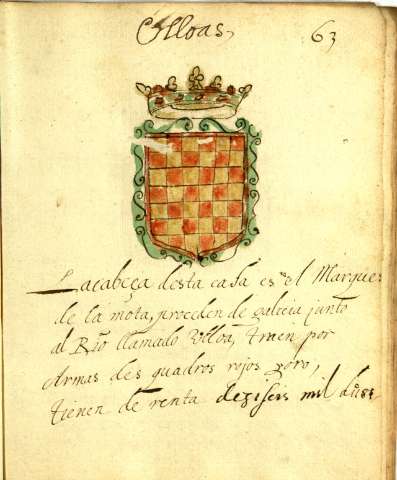 Ulloas, 63
La cabeça desta casa es el Marques
de la mota, proceden de galicia junto
al Rio llamado Ulloa, traen por
Armas des quadros rojos y oro,
tienen de renta deziseis mil